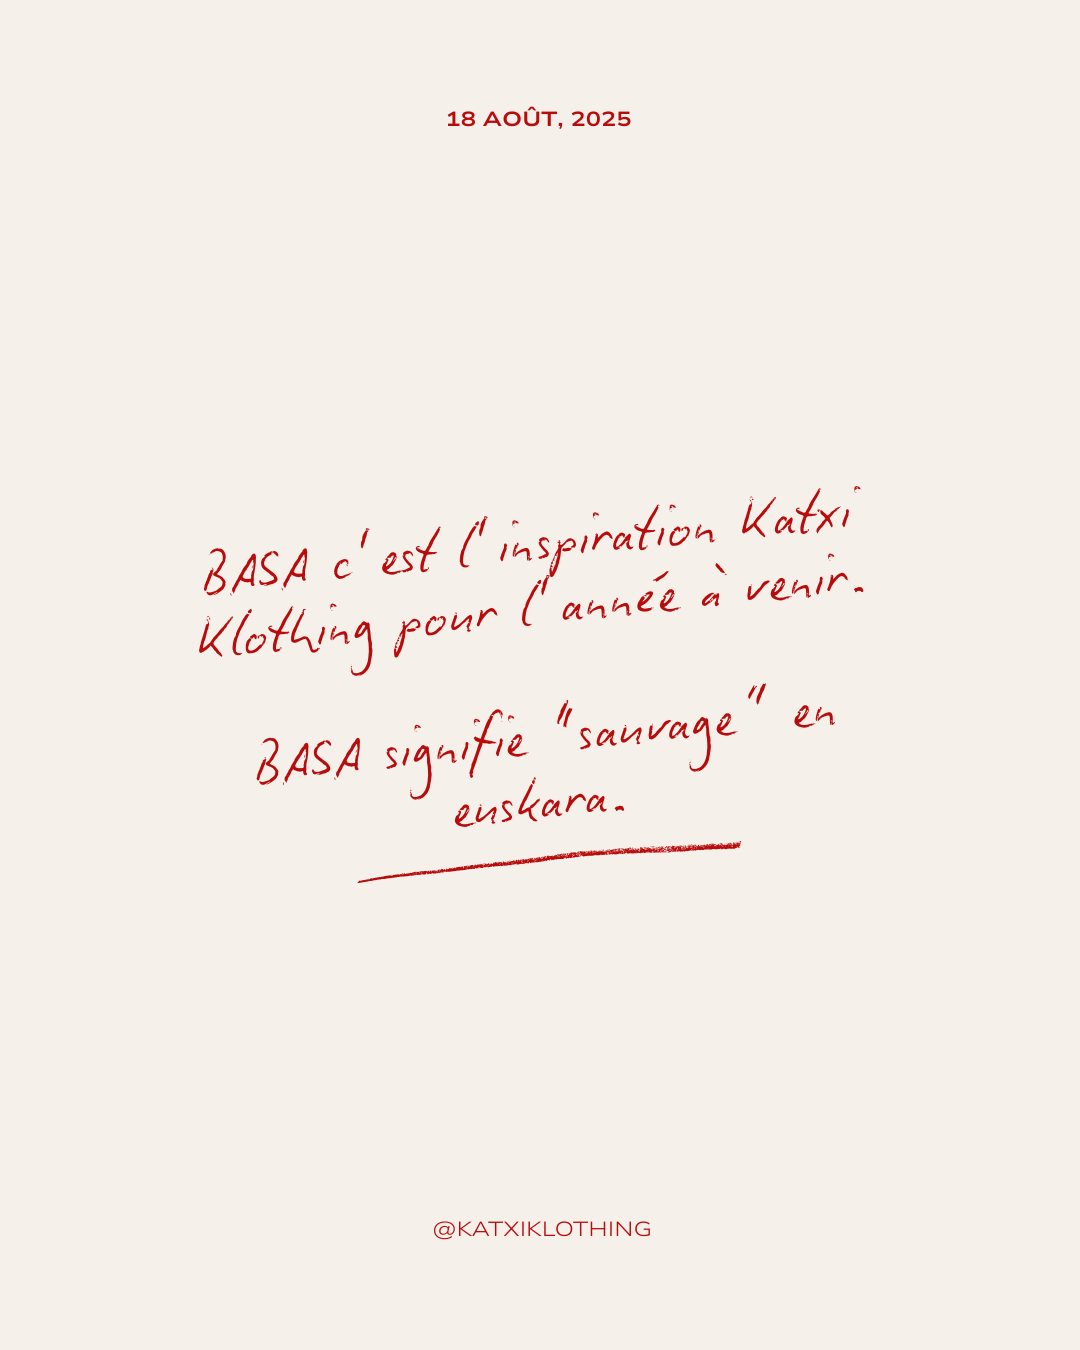 18 AOÛT, 2025
BASA c'est l'inspiration Katxi
Klothing pour l'annéé à venir.
BASA signifie "sauvage" en
euskara.
@KATXIKLOTHING